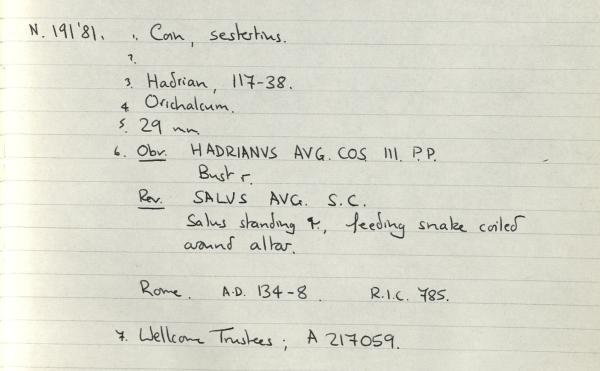 N. 191'81. 1. Coin, sestertius.
2.
3. Hadrian, 117-38.
4 Orichalcum.
5. 29 mm
6. Obv. HADRIANVS AVG. COS III. P.P.
Bust r.
Rev. SALVS AVG. S.C.
Salus standing r., feeding snake coiled
around altar.
Rome. A.D. 134-8 R.I.C. 785.
7. Wellcome Trustees; A 217059.